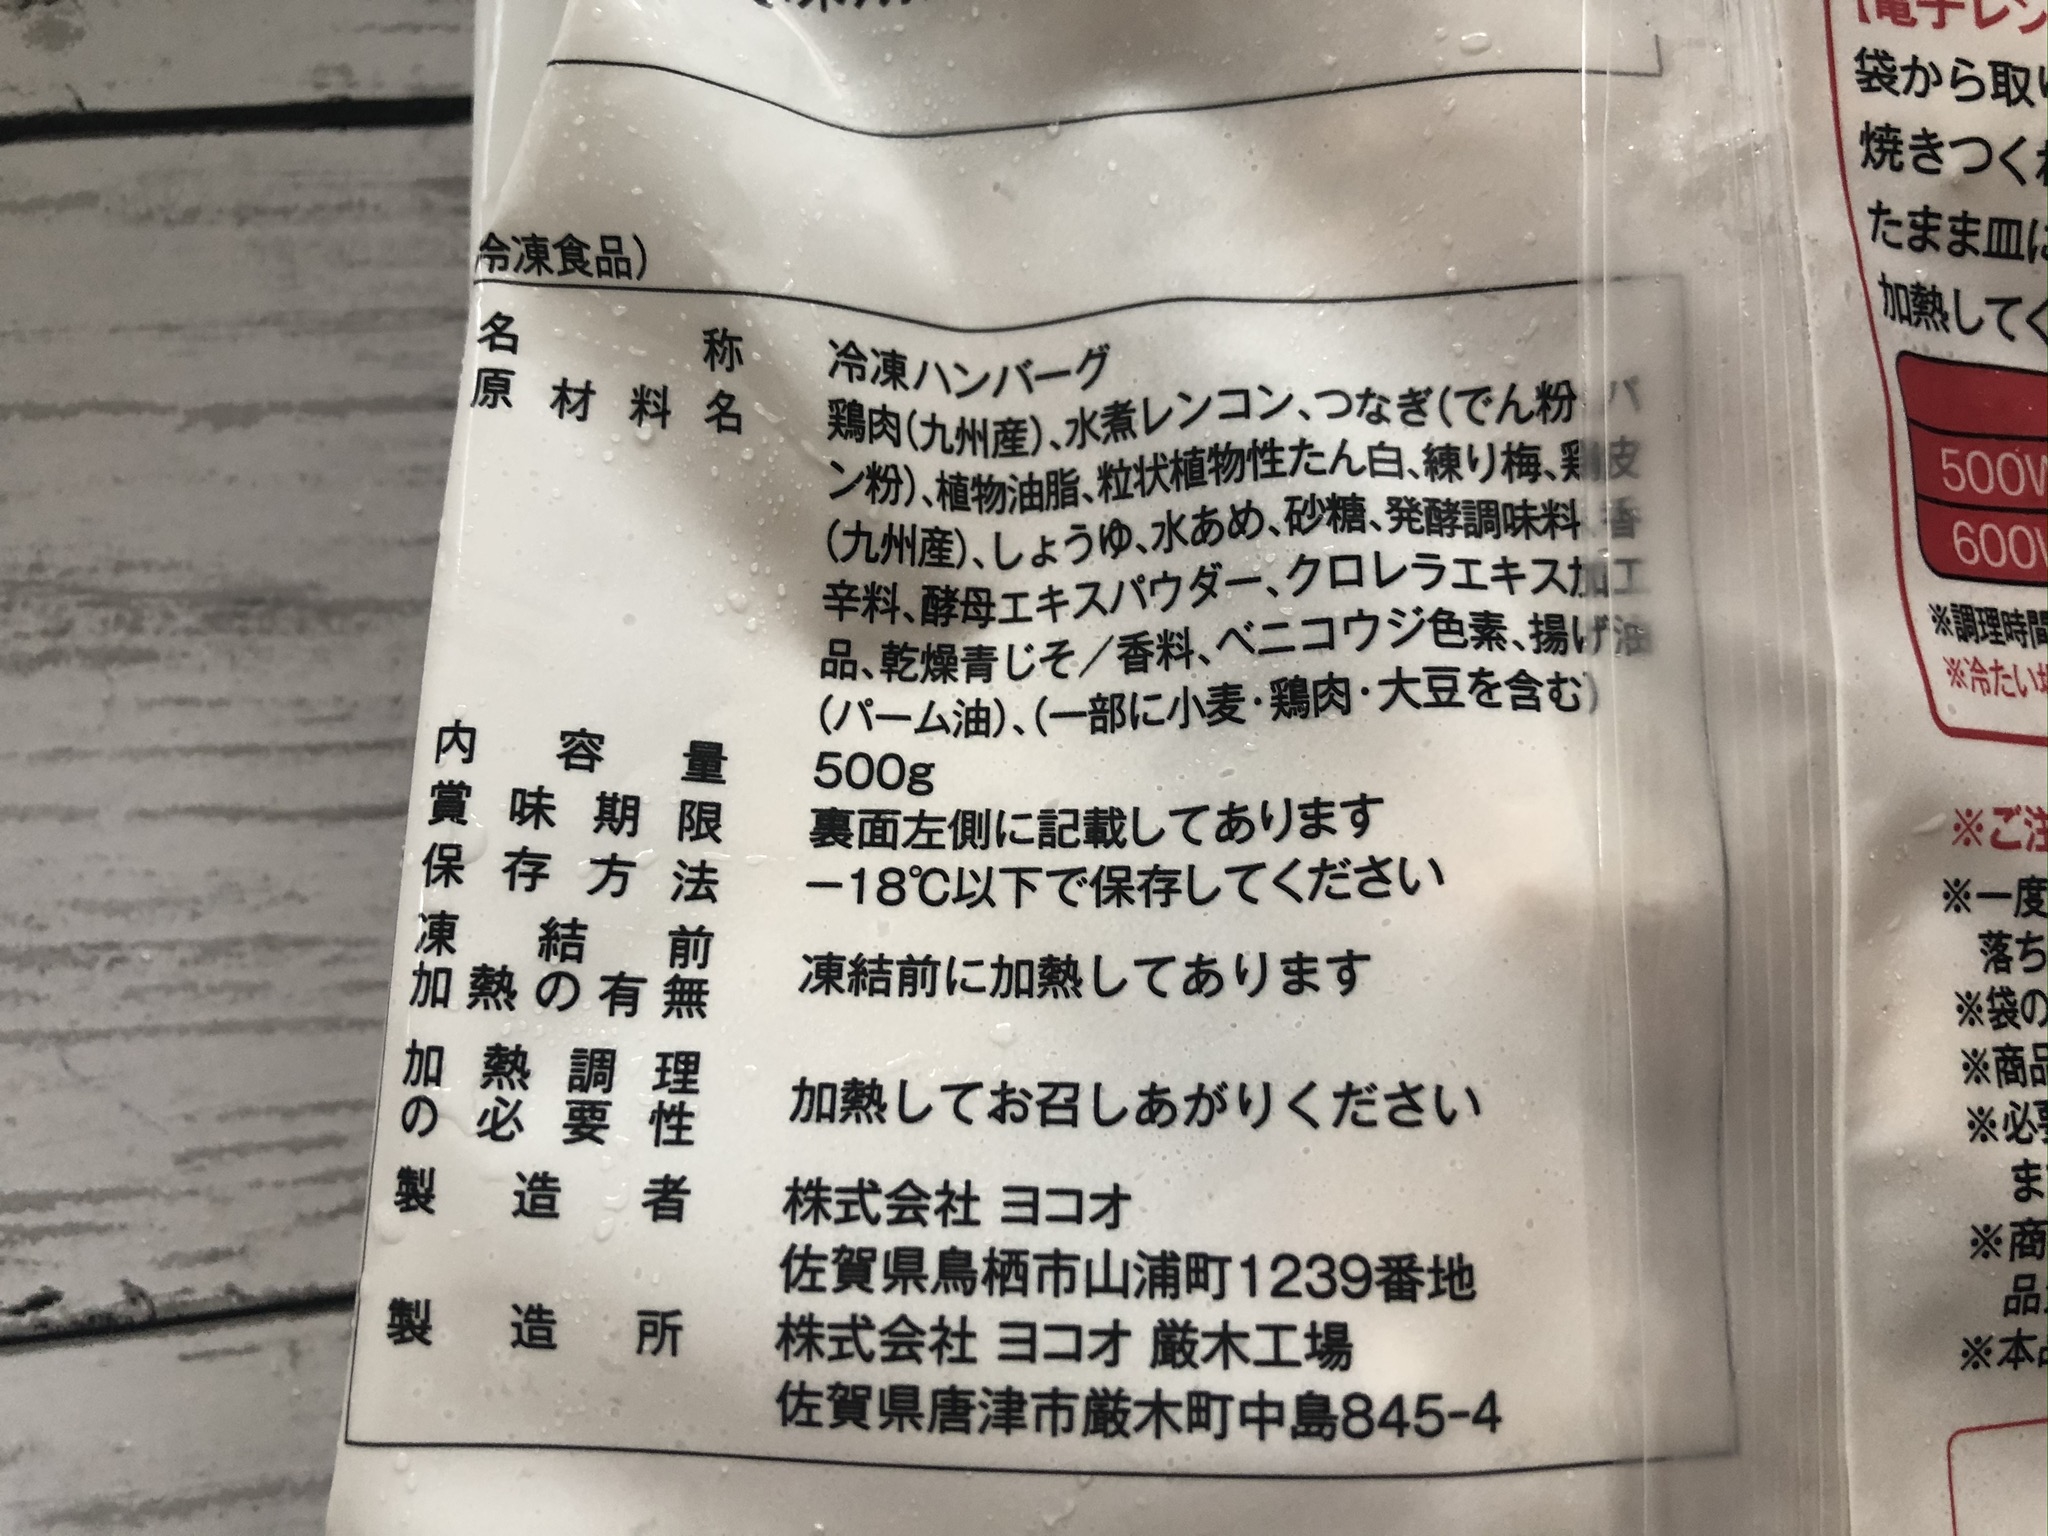 冷凍食品）
名称 冷凍ハンバーグ
原材料名 鶏肉（九州産）、水煮レンコン、つなぎ（でん粉、パ
ン粉）、植物油脂、粒状植物性たん白、練り梅、鶏皮
（九州産）、しょうゆ、水あめ、砂糖、発酵調味料、香
辛料、酵母エキスパウダー、クロレラエキス加工
品、乾燥青じそ／香料、ベニコウジ色素、揚げ油
（パーム油）、（一部に小麦・鶏肉・大豆を含む）
内容量 500g
賞味期限 裏面左側に記載してあります
保存方法 －18℃以下で保存してください
凍結前
加熱の有無 凍結前に加熱してあります
加熱調理
の必要性 加熱してお召しあがりください
製造者 株式会社 ヨコオ
佐賀県鳥栖市山浦町1239番地
製造所 株式会社 ヨコオ 厳木工場
佐賀県唐津市厳木町中島845-4
【電子レン
袋から取り
焼きつくね
たまま皿に
加熱してく
500W
600W
※調理時間
※冷たい場
※ご注
※一度
落ち
※袋の
※商品
※必要
ま
※商
品
※本品